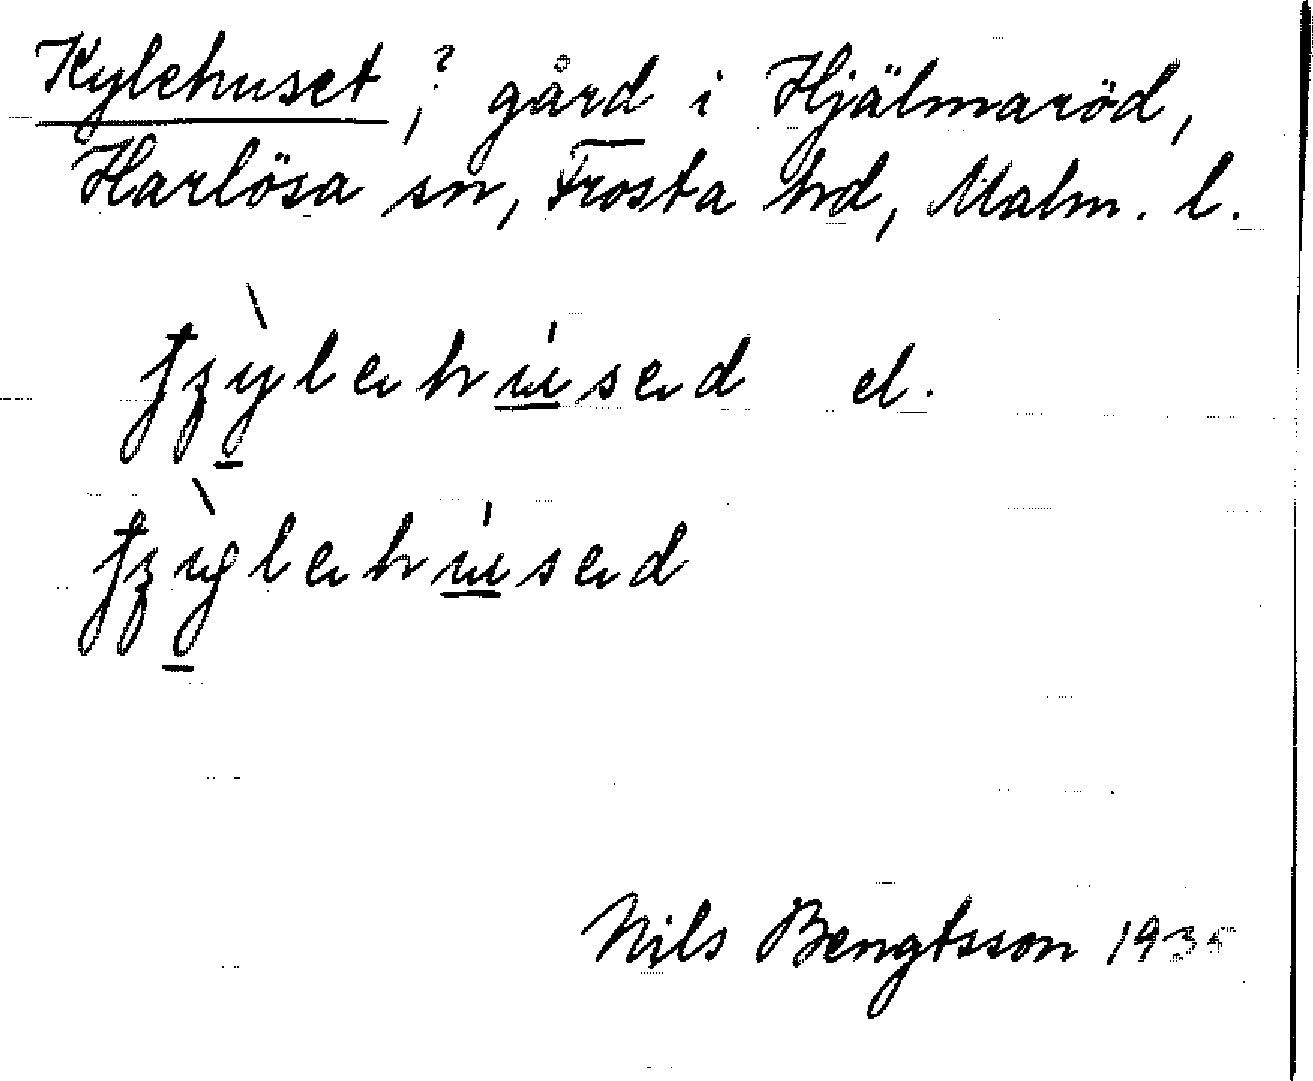 Kylehuset ?, gård i Hjälmaröd,
Harlösa sn, Frosta hd, Malm. l.
el.
Nils Bengtsson 1935